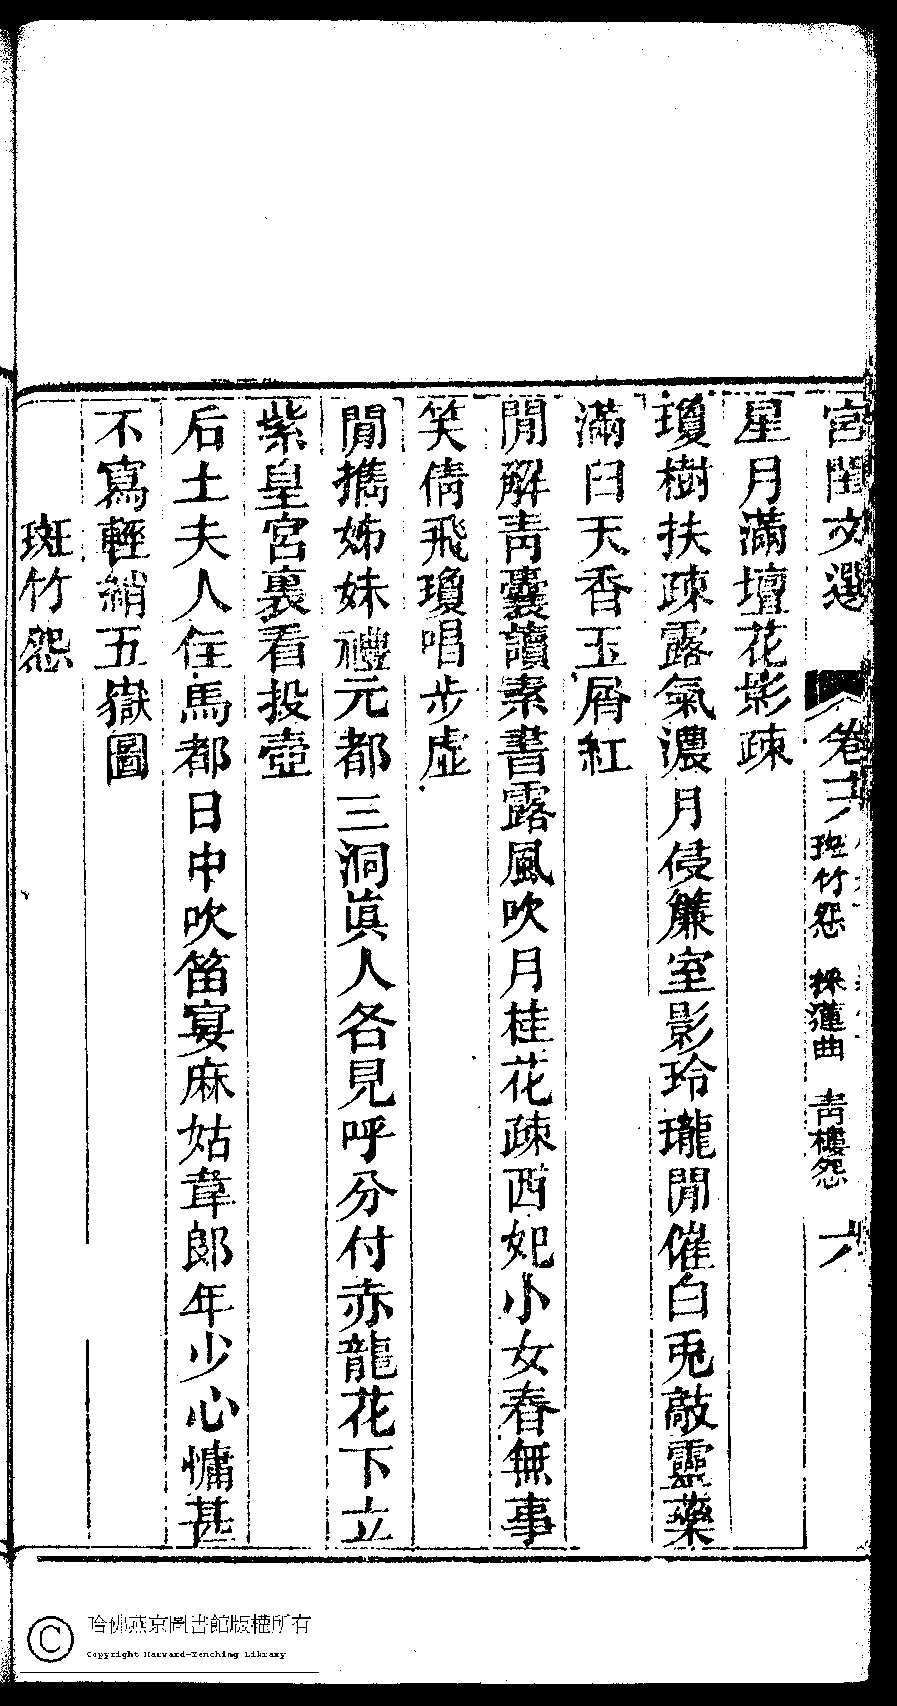 宮閨文選 卷二十六 斑竹怨 採蓮曲 靑樓怨 六
星月滿壇花影疎
瓊樹扶疎露氣濃月侵簾室影玲瓏閒催白兎敲靈藥
滿臼天香玉屑紅
閒解靑囊讀素書露風吹月桂花疎西妃小女春無事
笑倩飛瓊唱步虛
閒攜姊妹禮元都三洞眞人各見呼分付赤龍花下立
紫皇宮裏看投壺
后土夫人住馬都日中吹笛宴麻姑韋郞年少心慵甚
不寫輕綃五嶽圖
斑竹怨
哈佛燕京圖書館版權所有
Copyright Harvard-Yenching Library